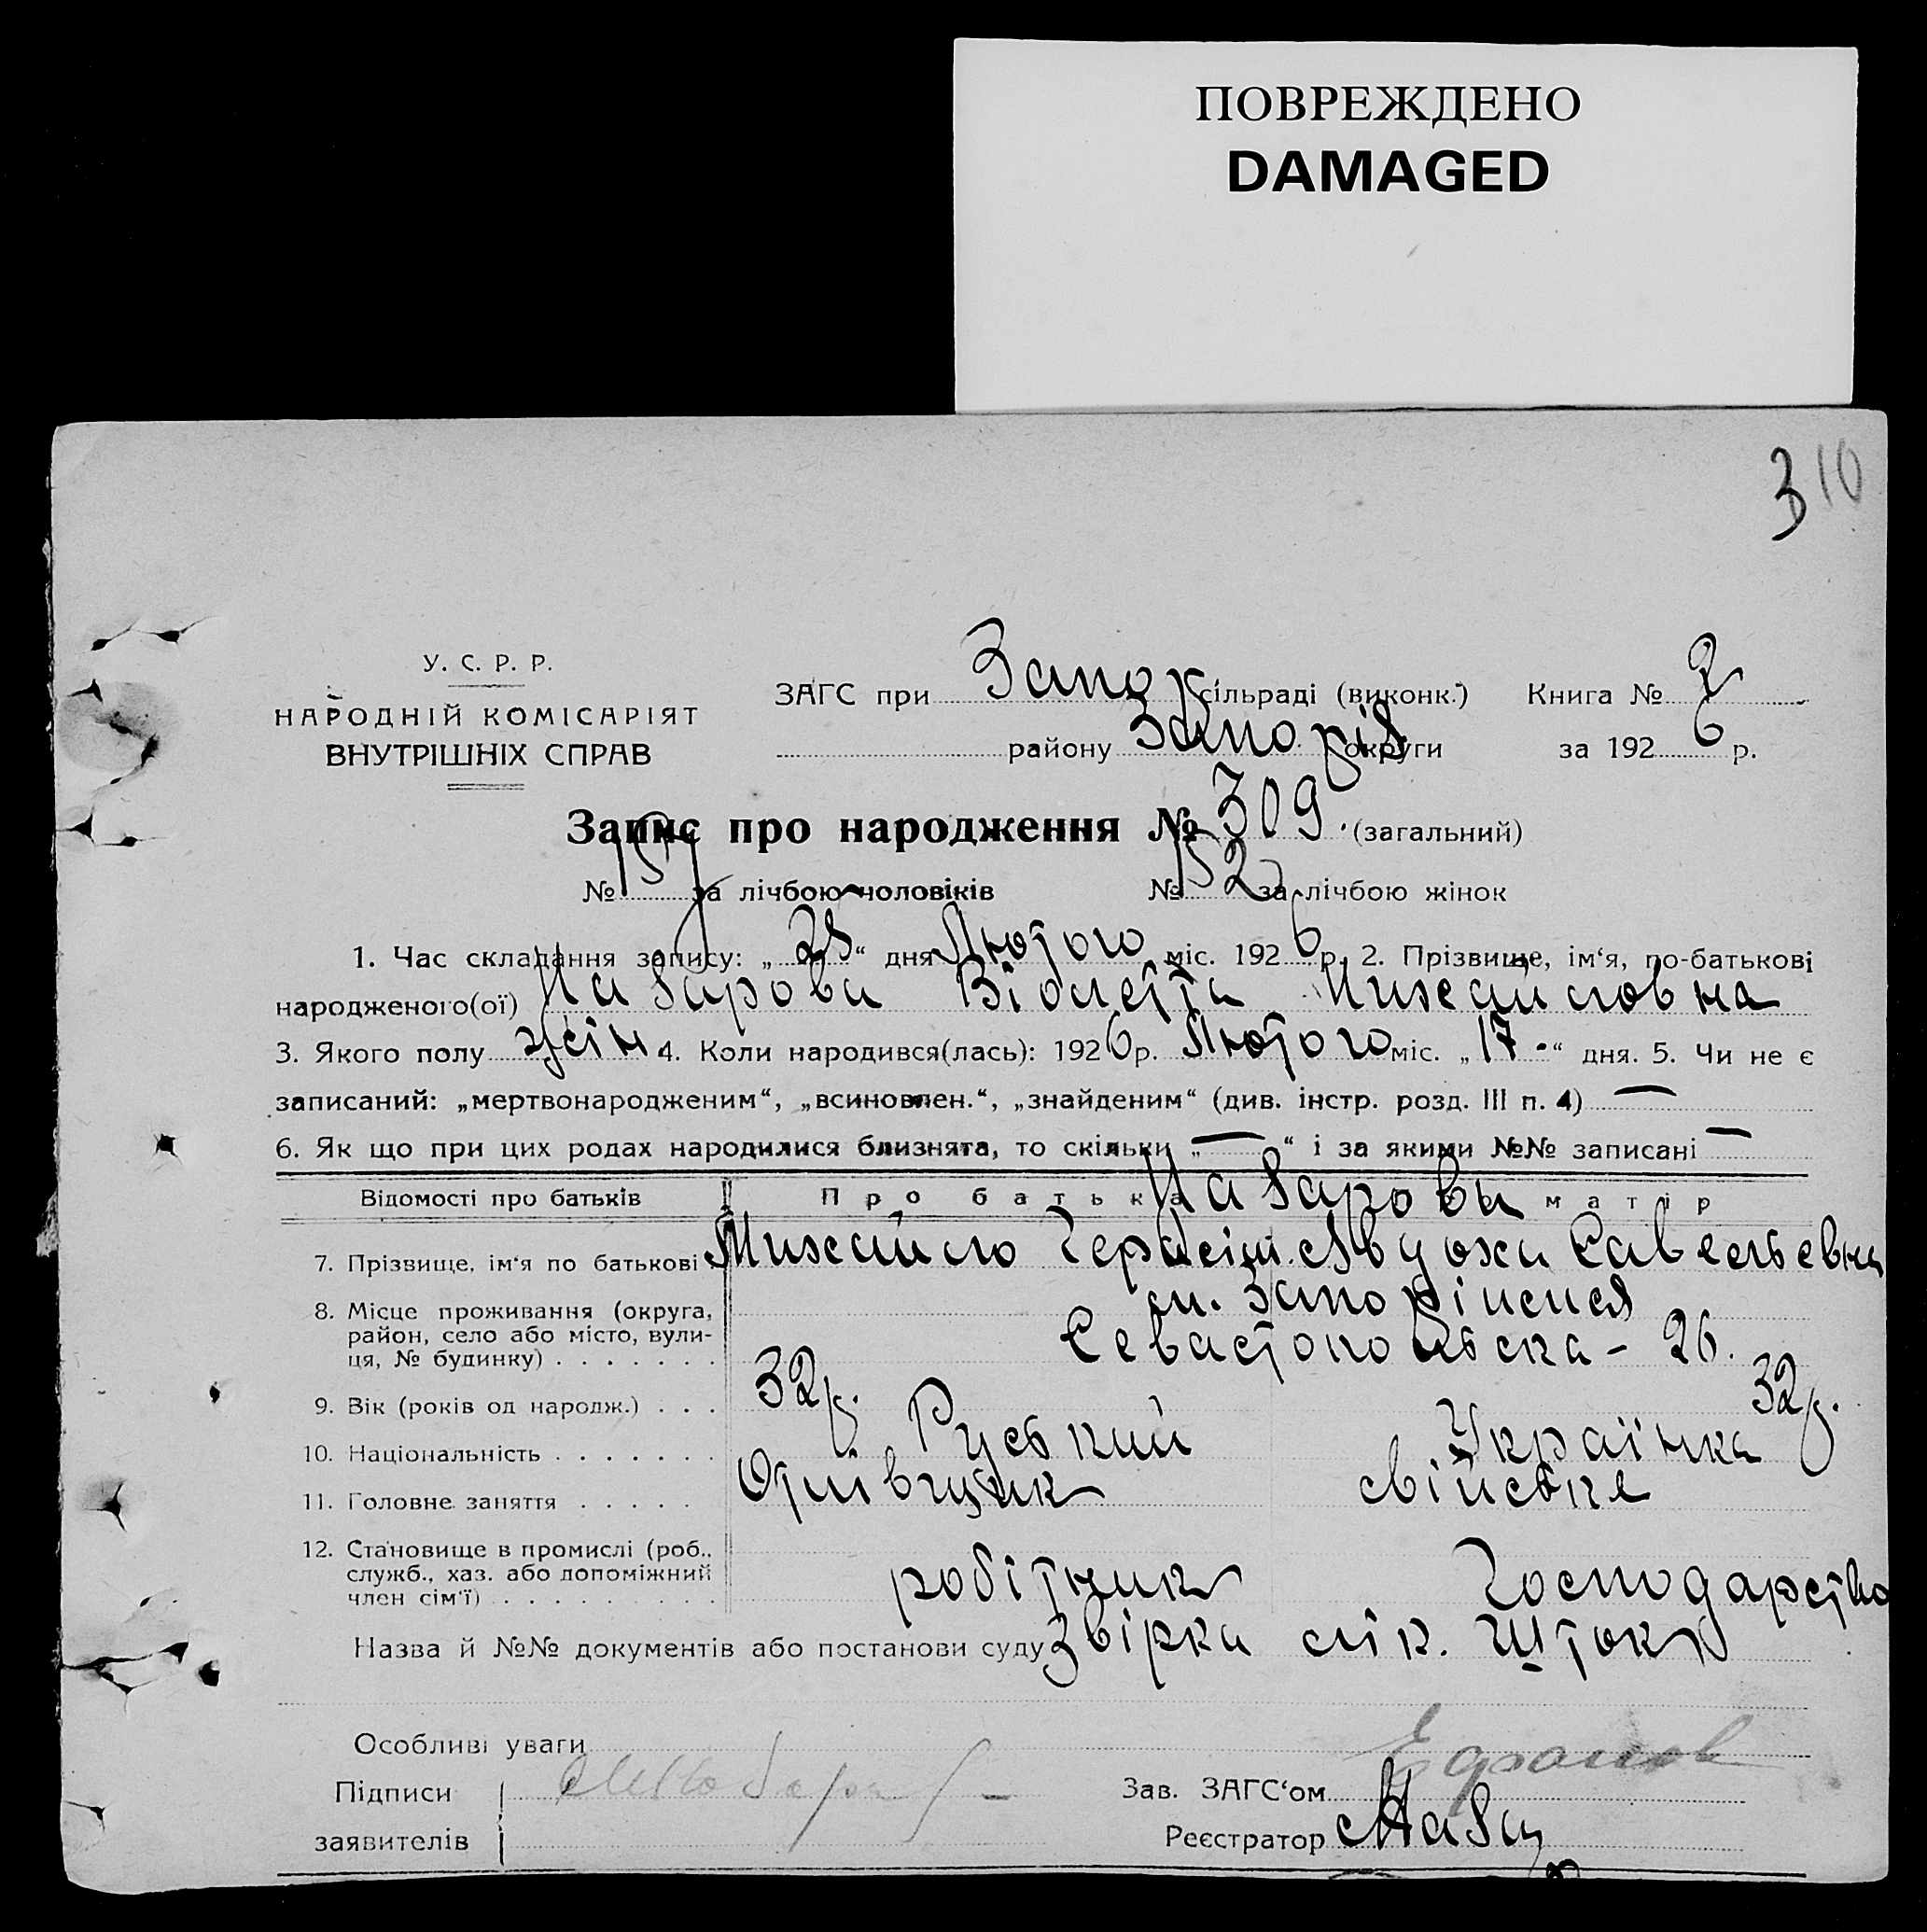 ПОВРЕЖДЕНО
DAMAGED
310
У. С. Р. Р.
НАРОДНІЙ КОМІСАРІЯТ
ВНУТРІШНІХ СПРАВ
ЗАГС при Запор сільраді (виконк.) Книга № 2
району Запоріз округи за 1926 р.
Запис про народження № 309. (загальний)
№ 157 за лічбою чоловіків № 152 за лічбою жінок
1. Час складання запису: „28“ дня Лютого міс. 1926 р. 2. Прізвище, ім‘я, по-батькові
народженого(ої) Назарова Віолетта Михайловна
3. Якого полу жін 4. Коли народився(лась): 1926 р. Лютого міс. „17.“ дня. 5. Чи не є
записаний: „мертвонародженим“, „всиновлен.“, „знайденим“ (див. інстр. розд. III п. 4) —
6. Як що при цих родах народилися близнята, то скільки „—“ і за якими №№ записані —
Відомості про батьків Про батька Про матір
Назарови
7. Прізвище, ім‘я по батькові Михайло Герасим. Явдоха Савельевна
8. Місце проживання (округа, район, село або місто, вулиця, № будинку) . . . . . . . м. Запоріжжя
Севастопольска - 26.
9. Вік (років од народж.) . . . 32р. 32р.
10. Національність . . . . . . . Руський Українка
11. Головне заняття . . . . . свійське
12. Становище в промислі (роб., служб., хаз. або допоміжний член сім‘ї) . . . . . . . . . . робітник Господарство
Назва й №№ документів або постанови суду Звірка лік. Шток
Особливі уваги
Підписи Зав. ЗАГС‘ом
заявителів Реєстратор